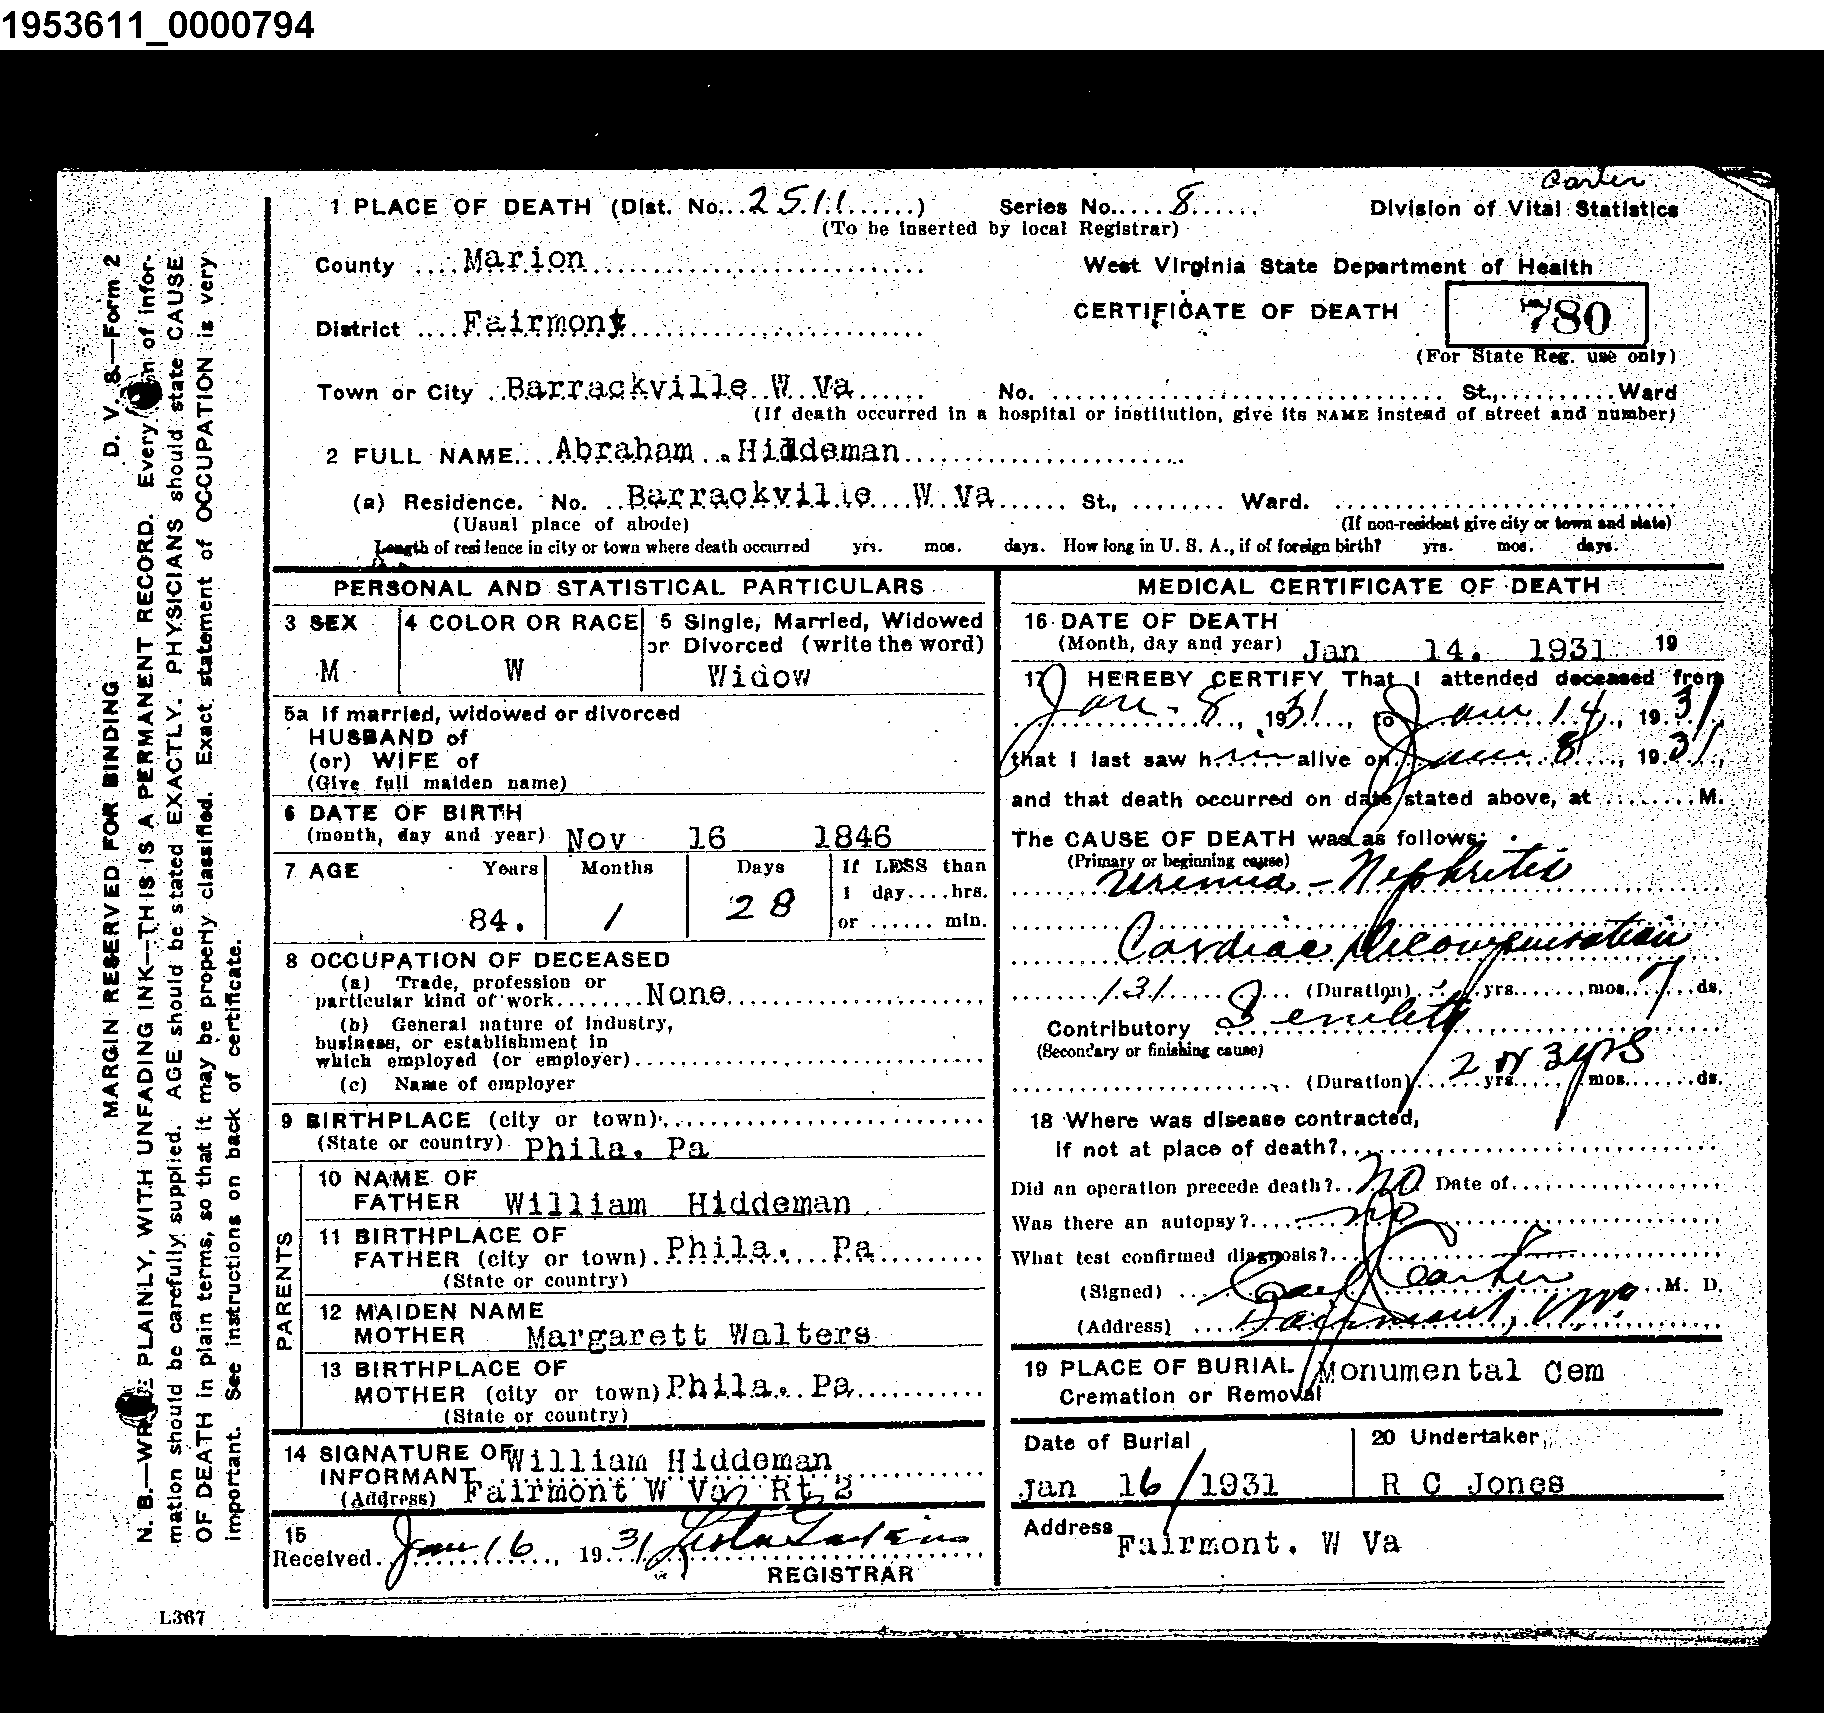 1953611_0000794
Carter
1 PLACE OF DEATH (Dist. No...2511......) Series No.....8...... Division of Vital Statistics
(To be inserted by local Registrar)
County ....Marion.............................. West Virginia State Department of Health
CERTIFICATE OF DEATH 780
District ....Fairmont..........................
(For State Reg. use only)
Town or City ..Barrackville W Va...... No. .................................... St.,..........Ward
(If death occurred in a hospital or institution, give its NAME instead of street and number)
2 FULL NAME....Abraham . Hiddeman........................
(a) Residence. No. ..Barrackville W Va...... St., ........ Ward. ..............................
(Usual place of abode) (If non-resident give city or town and state)
Length of residence in city or town where death occurred yrs. mos. days. How long in U. S. A., if of foreign birth? yrs. mos. days.
PERSONAL AND STATISTICAL PARTICULARS
3 SEX 4 COLOR OR RACE 5 Single, Married, Widowed
or Divorced (write the word)
M W Widow
5a If married, widowed or divorced
HUSBAND of
(or) WIFE of
(Give full maiden name)
6 DATE OF BIRTH
(month, day and year) Nov 16 1846
7 AGE Years Months Days If LESS than
1 day....hrs.
84. 1 28 or ...... min.
8 OCCUPATION OF DECEASED
(a) Trade, profession or
particular kind of work........None..............................
(b) General nature of industry,
business, or establishment in
which employed (or employer)........................................
(c) Name of employer
9 BIRTHPLACE (city or town)....................................
(State or country) Phila. Pa
PARENTS
10 NAME OF
FATHER William Hiddeman
11 BIRTHPLACE OF
FATHER (city or town).Phila. Pa..........
(State or country)
12 MAIDEN NAME
MOTHER Margarett Walters
13 BIRTHPLACE OF
MOTHER (city or town)Phila. Pa............
(State or country)
14 SIGNATURE OF William Hiddeman
INFORMANT
(Address) Fairmont W Va Rt 2
15
Received. Jan 16......, 1931
REGISTRAR
MEDICAL CERTIFICATE OF DEATH
16 DATE OF DEATH
(Month, day and year) Jan 14. 1931 19
17 I HEREBY CERTIFY That I attended deceased from
Jan - 8, 1931, to Jan 14, 1931
that I last saw him alive on Jan 8, 1931,
and that death occurred on date stated above, at ........M.
The CAUSE OF DEATH was as follows:
(Primary or beginning cause)
Uremia - Nephritis
Cardiac Decompensation
131 (Duration)......yrs.......mos...7...ds.
Contributory Senility
(Secondary or finishing cause)
2 or 3 yrs
(Duration)......yrs......mos.......ds.
18 Where was disease contracted,
if not at place of death?..............................
Did an operation precede death?..No Date of....................
Was there an autopsy?......no
What test confirmed diagnosis?....
(Signed) Carter M. D.
(Address) Fairmont, W Va
19 PLACE OF BURIAL Monumental Cem
Cremation or Removal
Date of Burial 20 Undertaker
Jan 16/1931 R C Jones
Address Fairmont. W Va
D. V. S.—Form 2
MARGIN RESERVED FOR BINDING
N. B.—WRITE PLAINLY, WITH UNFADING INK—THIS IS A PERMANENT RECORD. Every item of infor-
mation should be carefully supplied. AGE should be stated EXACTLY. PHYSICIANS should state CAUSE
OF DEATH in plain terms, so that it may be properly classified. Exact statement of OCCUPATION is very
important. See instructions on back of certificate.
L367